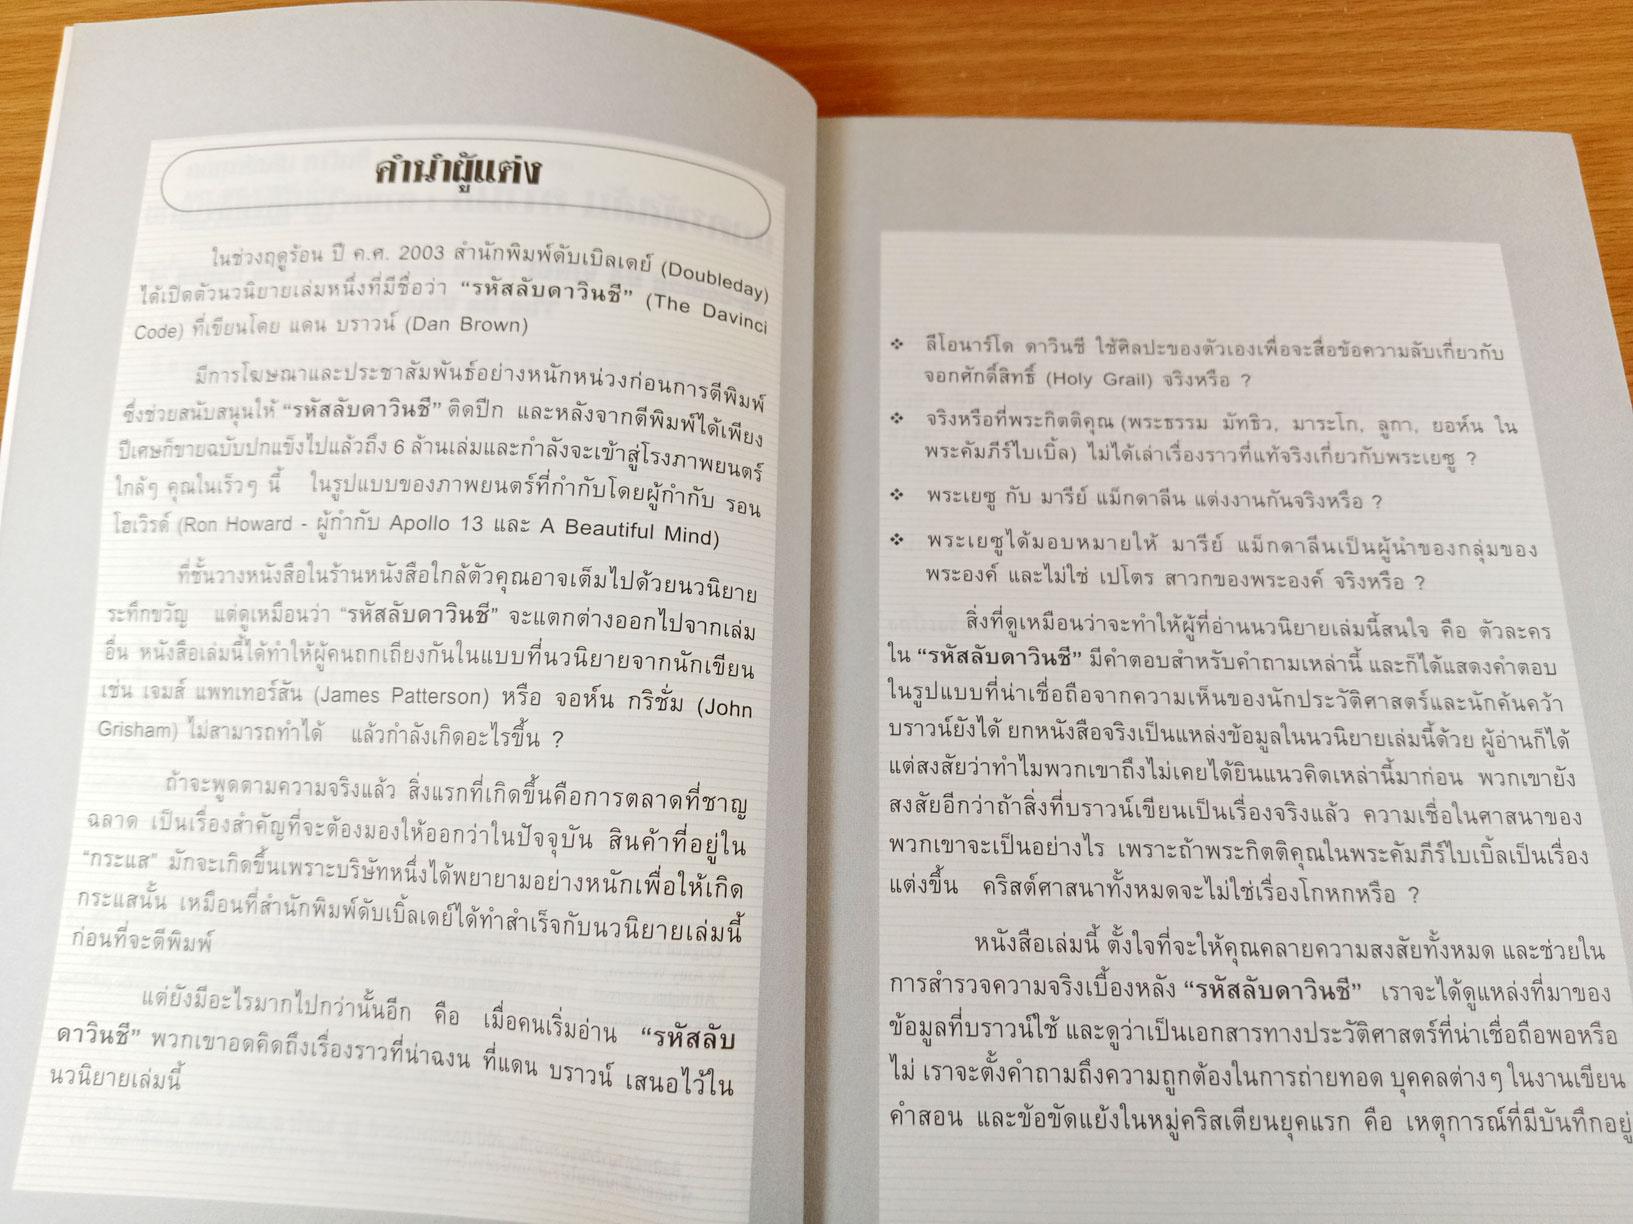 คำนำผู้แต่ง
ในช่วงฤดูร้อน ปี ค.ศ. 2003 สำนักพิมพ์ดับเบิลเดย์ (Doubleday)
ได้เปิดตัวนวนิยายเล่มหนึ่งที่มีชื่อว่า “รหัสลับดาวินชี” (The Davinci
Code) ที่เขียนโดย แดน บราวน์ (Dan Brown)
มีการโฆษณาและประชาสัมพันธ์อย่างหนักหน่วงก่อนการตีพิมพ์
ซึ่งช่วยสนับสนุนให้ “รหัสลับดาวินชี” ติดปีก และหลังจากตีพิมพ์ได้เพียง
ปีเศษก็ขายฉบับปกแข็งไปแล้วถึง 6 ล้านเล่มและกำลังจะเข้าสู่โรงภาพยนตร์
ใกล้ๆ คุณในเร็วๆ นี้ ในรูปแบบของภาพยนตร์ที่กำกับโดยผู้กำกับ รอน
โฮเวิรด์ (Ron Howard - ผู้กำกับ Apollo 13 และ A Beautiful Mind)
ที่ชั้นวางหนังสือในร้านหนังสือใกล้ตัวคุณอาจเต็มไปด้วยนวนิยาย
ระทึกขวัญ แต่ดูเหมือนว่า “รหัสลับดาวินชี” จะแตกต่างออกไปจากเล่ม
อื่น หนังสือเล่มนี้ได้ทำให้ผู้คนถกเถียงกันในแบบที่นวนิยายจากนักเขียน
เช่น เจมส์ แพทเทอร์สัน (James Patterson) หรือ จอห์น กริชั่ม (John
Grisham) ไม่สามารถทำได้ แล้วกำลังเกิดอะไรขึ้น ?
ถ้าจะพูดตามความจริงแล้ว สิ่งแรกที่เกิดขึ้นคือการตลาดที่ชาญ
ฉลาด เป็นเรื่องสำคัญที่จะต้องมองให้ออกว่าในปัจจุบัน สินค้าที่อยู่ใน
“กระแส” มักจะเกิดขึ้นเพราะบริษัทหนึ่งได้พยายามอย่างหนักเพื่อให้เกิด
กระแสนั้น เหมือนที่สำนักพิมพ์ดับเบิ้ลเดย์ได้ทำสำเร็จกับนวนิยายเล่มนี้
ก่อนที่จะตีพิมพ์
แต่ยังมีอะไรมากไปกว่านั้นอีก คือ เมื่อคนเริ่มอ่าน “รหัสลับ
ดาวินชี” พวกเขาอดคิดถึงเรื่องราวที่น่าฉงน ที่แดน บราวน์ เสนอไว้ใน
นวนิยายเล่มนี้
❖ ลีโอนาร์โด ดาวินชี ใช้ศิลปะของตัวเองเพื่อจะสื่อข้อความลับเกี่ยวกับ
จอกศักดิ์สิทธิ์ (Holy Grail) จริงหรือ ?
❖ จริงหรือที่พระกิตติคุณ (พระธรรม มัทธิว, มาระโก, ลูกา, ยอห์น ใน
พระคัมภีร์ไบเบิ้ล) ไม่ได้เล่าเรื่องราวที่แท้จริงเกี่ยวกับพระเยซู ?
❖ พระเยซู กับ มารีย์ แม็กดาลีน แต่งงานกันจริงหรือ ?
❖ พระเยซูได้มอบหมายให้ มารีย์ แม็กดาลีนเป็นผู้นำของกลุ่มของ
พระองค์ และไม่ใช่ เปโตร สาวกของพระองค์ จริงหรือ ?
สิ่งที่ดูเหมือนว่าจะทำให้ผู้ที่อ่านนวนิยายเล่มนี้สนใจ คือ ตัวละคร
ใน “รหัสลับดาวินชี” มีคำตอบสำหรับคำถามเหล่านี้ และก็ได้แสดงคำตอบ
ในรูปแบบที่น่าเชื่อถือจากความเห็นของนักประวัติศาสตร์และนักค้นคว้า
บราวน์ยังได้ ยกหนังสือจริงเป็นแหล่งข้อมูลในนวนิยายเล่มนี้ด้วย ผู้อ่านก็ได้
แต่สงสัยว่าทำไมพวกเขาถึงไม่เคยได้ยินแนวคิดเหล่านี้มาก่อน พวกเขายัง
สงสัยอีกว่าถ้าสิ่งที่บราวน์เขียนเป็นเรื่องจริงแล้ว ความเชื่อในศาสนาของ
พวกเขาจะเป็นอย่างไร เพราะถ้าพระกิตติคุณในพระคัมภีร์ไบเบิ้ลเป็นเรื่อง
แต่งขึ้น คริสต์ศาสนาทั้งหมดจะไม่ใช่เรื่องโกหกหรือ ?
หนังสือเล่มนี้ ตั้งใจที่จะให้คุณคลายความสงสัยทั้งหมด และช่วยใน
การสำรวจความจริงเบื้องหลัง “รหัสลับดาวินชี” เราจะได้ดูแหล่งที่มาของ
ข้อมูลที่บราวน์ใช้ และดูว่าเป็นเอกสารทางประวัติศาสตร์ที่น่าเชื่อถือพอหรือ
ไม่ เราจะตั้งคำถามถึงความถูกต้องในการถ่ายทอด บุคคลต่างๆ ในงานเขียน
คำสอน และข้อขัดแย้งในหมู่คริสเตียนยุคแรก คือ เหตุการณ์ที่มีบันทึกอยู่